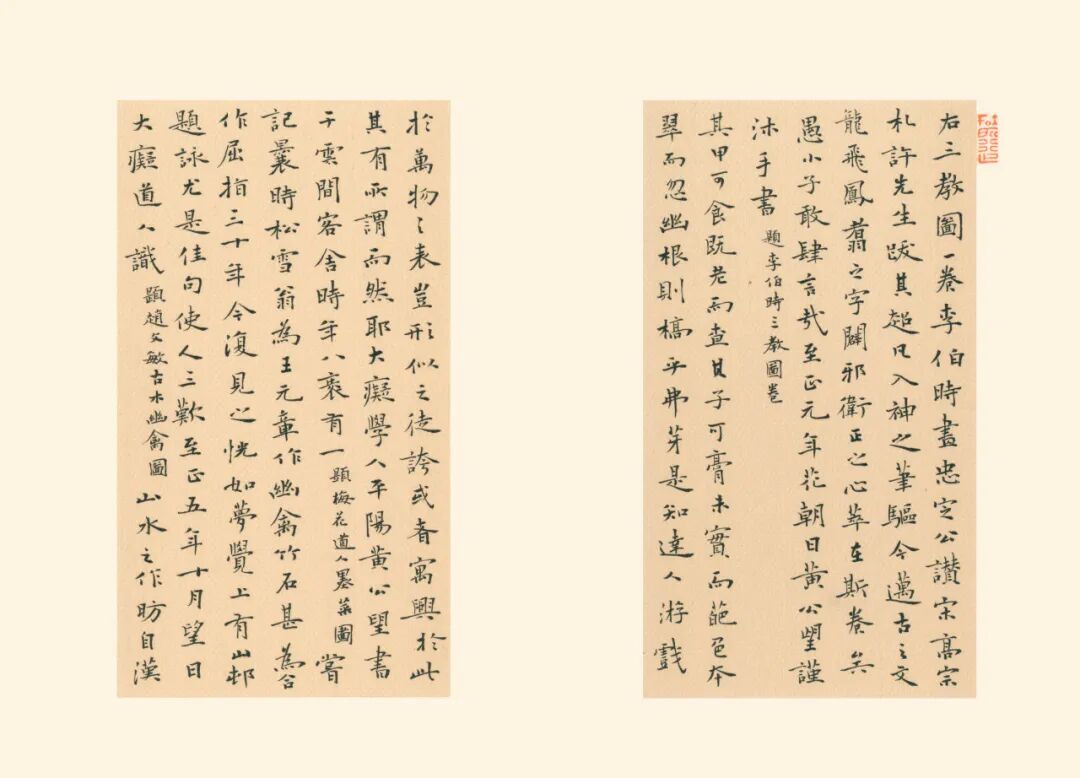 右三教圖一卷李伯時畫忠定公讃宋高宗
札許先生跋其超凡入神之筆驅今邁古之文
龍飛鳳翥之字闢邪衛正之心萃在斯卷矣
愚小子敢肆言哉至正元年花朝日黄公朢謹
沐手書 題李伯時三教圖卷
其甲可食既老而查其子可膏未實而葩色本
翠而忽幽根則槁乎弗芽是知達人游戲
於萬物之表豈形似之徒誇或者寓興於此
其有所謂而然耶大癡學人平陽黄公望書
于雲間客舍時年八袠有一 題梅花道人墨菜圖 嘗
記曩時松雪翁為王元章作幽禽竹石甚為合
作屈指三十年今復見之恍如夢覺上有山邨
題詠尤是佳句使人三歎至正五年十月望日
大癡道人識 題趙文敏古木幽禽圖 山水之作昉自漢